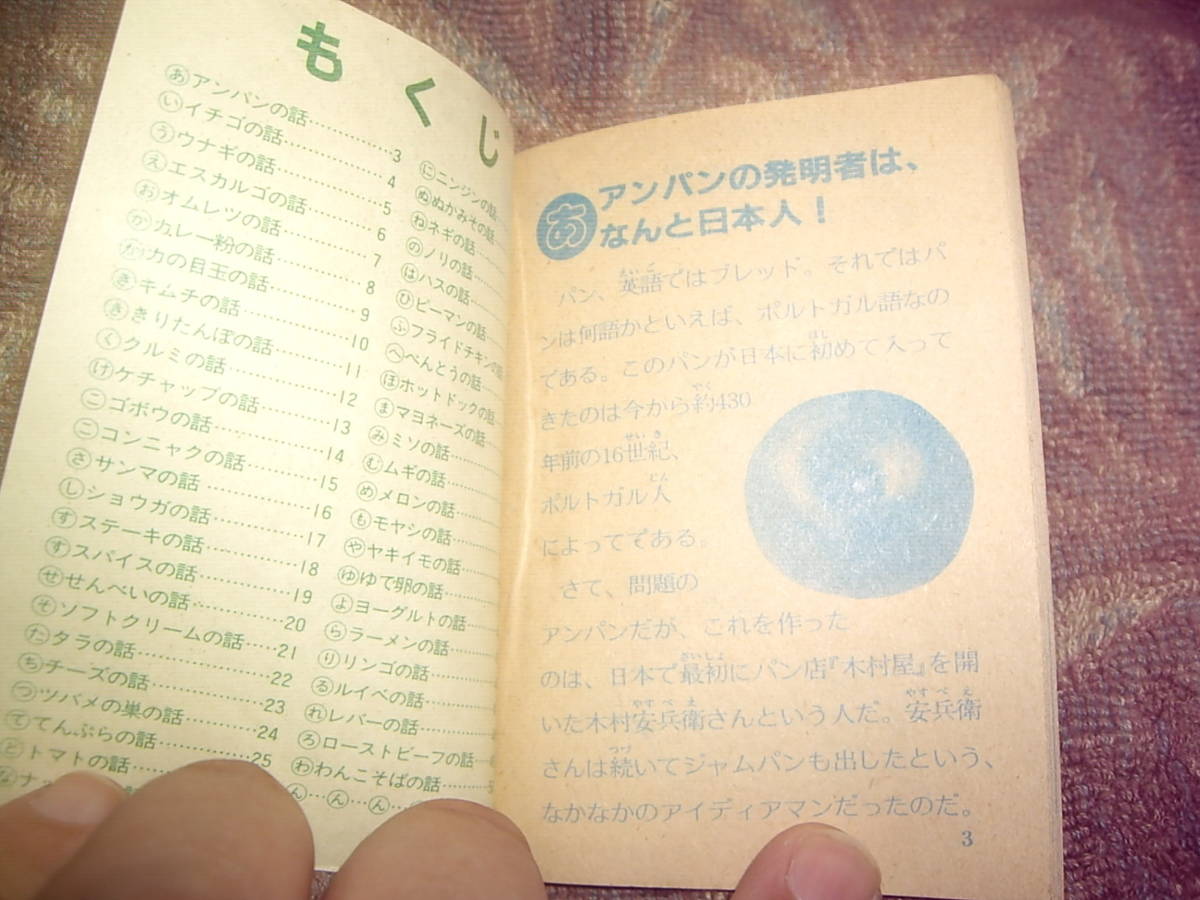 もくじ
あ アンパンの話…………3
い イチゴの話…………4
う ウナギの話…………5
え エスカルゴの話…………6
お オムレツの話…………7
か カレー粉の話…………8
か カの目玉の話…………9
き キムチの話…………10
き きりたんぽの話…………11
く クルミの話…………12
け ケチャップの話…………13
こ ゴボウの話…………14
こ コンニャクの話…………15
さ サンマの話…………16
し ショウガの話…………17
す ステーキの話…………18
す スパイスの話…………19
せ せんべいの話…………20
そ ソフトクリームの話…………21
た タラの話…………22
ち チーズの話…………23
つ ツバメの巣の話…………24
て てんぷらの話…………25
と トマトの話…………
な ナッ
に ニンジンの話
ぬ ぬかみその話
ね ネギの話
の ノリの話
は ハスの話
ひ ピーマンの話
ふ フライドチキンの話
へ べんとうの話
ほ ホットドックの話
ま マヨネーズの話
み ミソの話
む ムギの話
め メロンの話
も モヤシの話
や ヤキイモの話
ゆ ゆで卵の話
よ ヨーグルトの話
ら ラーメンの話
り リンゴの話
る ルイベの話
れ レバーの話
ろ ローストビーフの話
わ わんこそばの話
ん…ん…ん…
あ アンパンの発明者は、
なんと日本人！
パン、英語ではブレッド。それではパ
ンは何語かといえば、ポルトガル語なの
である。このパンが日本に初めて入って
きたのは今から約430
年前の16世紀、
ポルトガル人
によってである。
さて、問題の
アンパンだが、これを作った
のは、日本で最初にパン店『木村屋』を開
いた木村安兵衛さんという人だ。安兵衛
さんは続いてジャムパンも出したという、
なかなかのアイディアマンだったのだ。
3